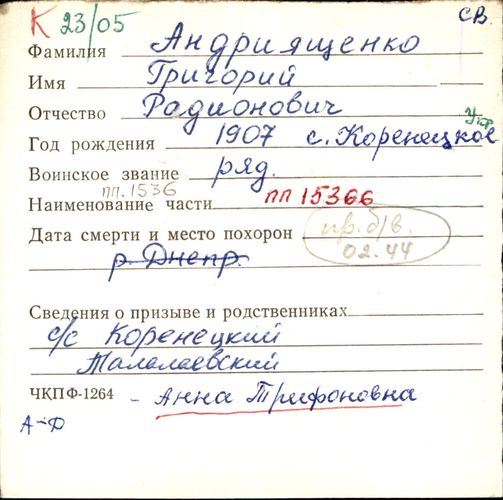 К 23/05 СВ.
Фамилия Андриященко
Имя Григорий
Отчество Радионович
Укр.
Год рождения 1907 с. Коренецкое
Воинское звание ряд.
пп. 1536
Наименование части пп 15366
Дата смерти и место похорон пр. б/в. 02.44
р. Днепр.
Сведения о призыве и родственниках
с/с Коренецкий
Талалаевский
ЧКПФ-1264 - Анна Трифоновна
А-Д